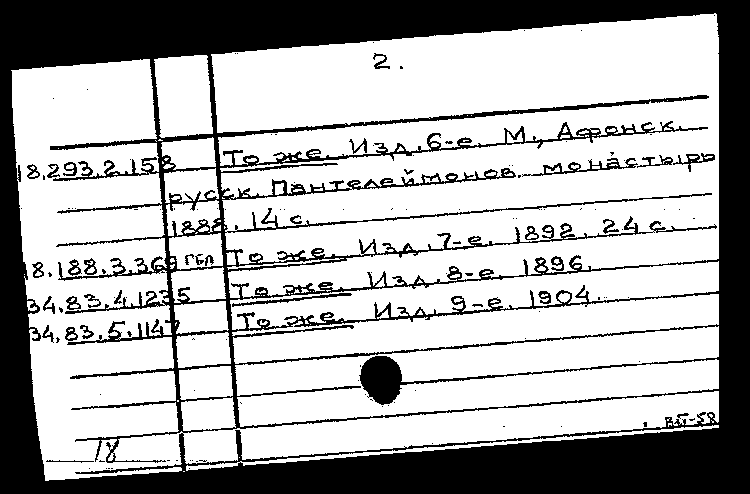 2.
18.293.2.158 То же. Изд. 6-е. М., Афонск.
русск. Пантелеймонов. монастырь
1888. 14 с.
18.188.3.369 ГБЛ То же. Изд. 7-е. 1892. 24 с.
34.83.4.1235 То же. Изд. 8-е. 1896.
34.83.5.1147 То же. Изд. 9-е. 1904.
18